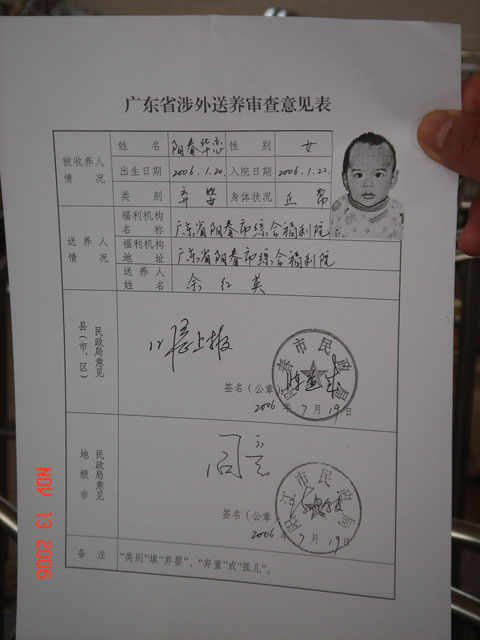 广东省涉外送养审查意见表
被收养人情况
姓名 阳春华恋 性别 女
出生日期 2006.1.20. 入院日期 2006.1.22.
类别 弃婴 身体状况 正常
送养人情况
福利机构名称 广东省阳春市综合福利院
福利机构地址 广东省阳春市综合福利院
送养人姓名 余红英
县(市、区)民政局意见
上报
阳春市民政局
签名(公章)
2006年7月19日
地级市民政局意见
同意
阳江市民政局
签名(公章)
2006年7月
备注 “类别”填“弃婴”、“弃童”或“孤儿”。
NOV 13 2006